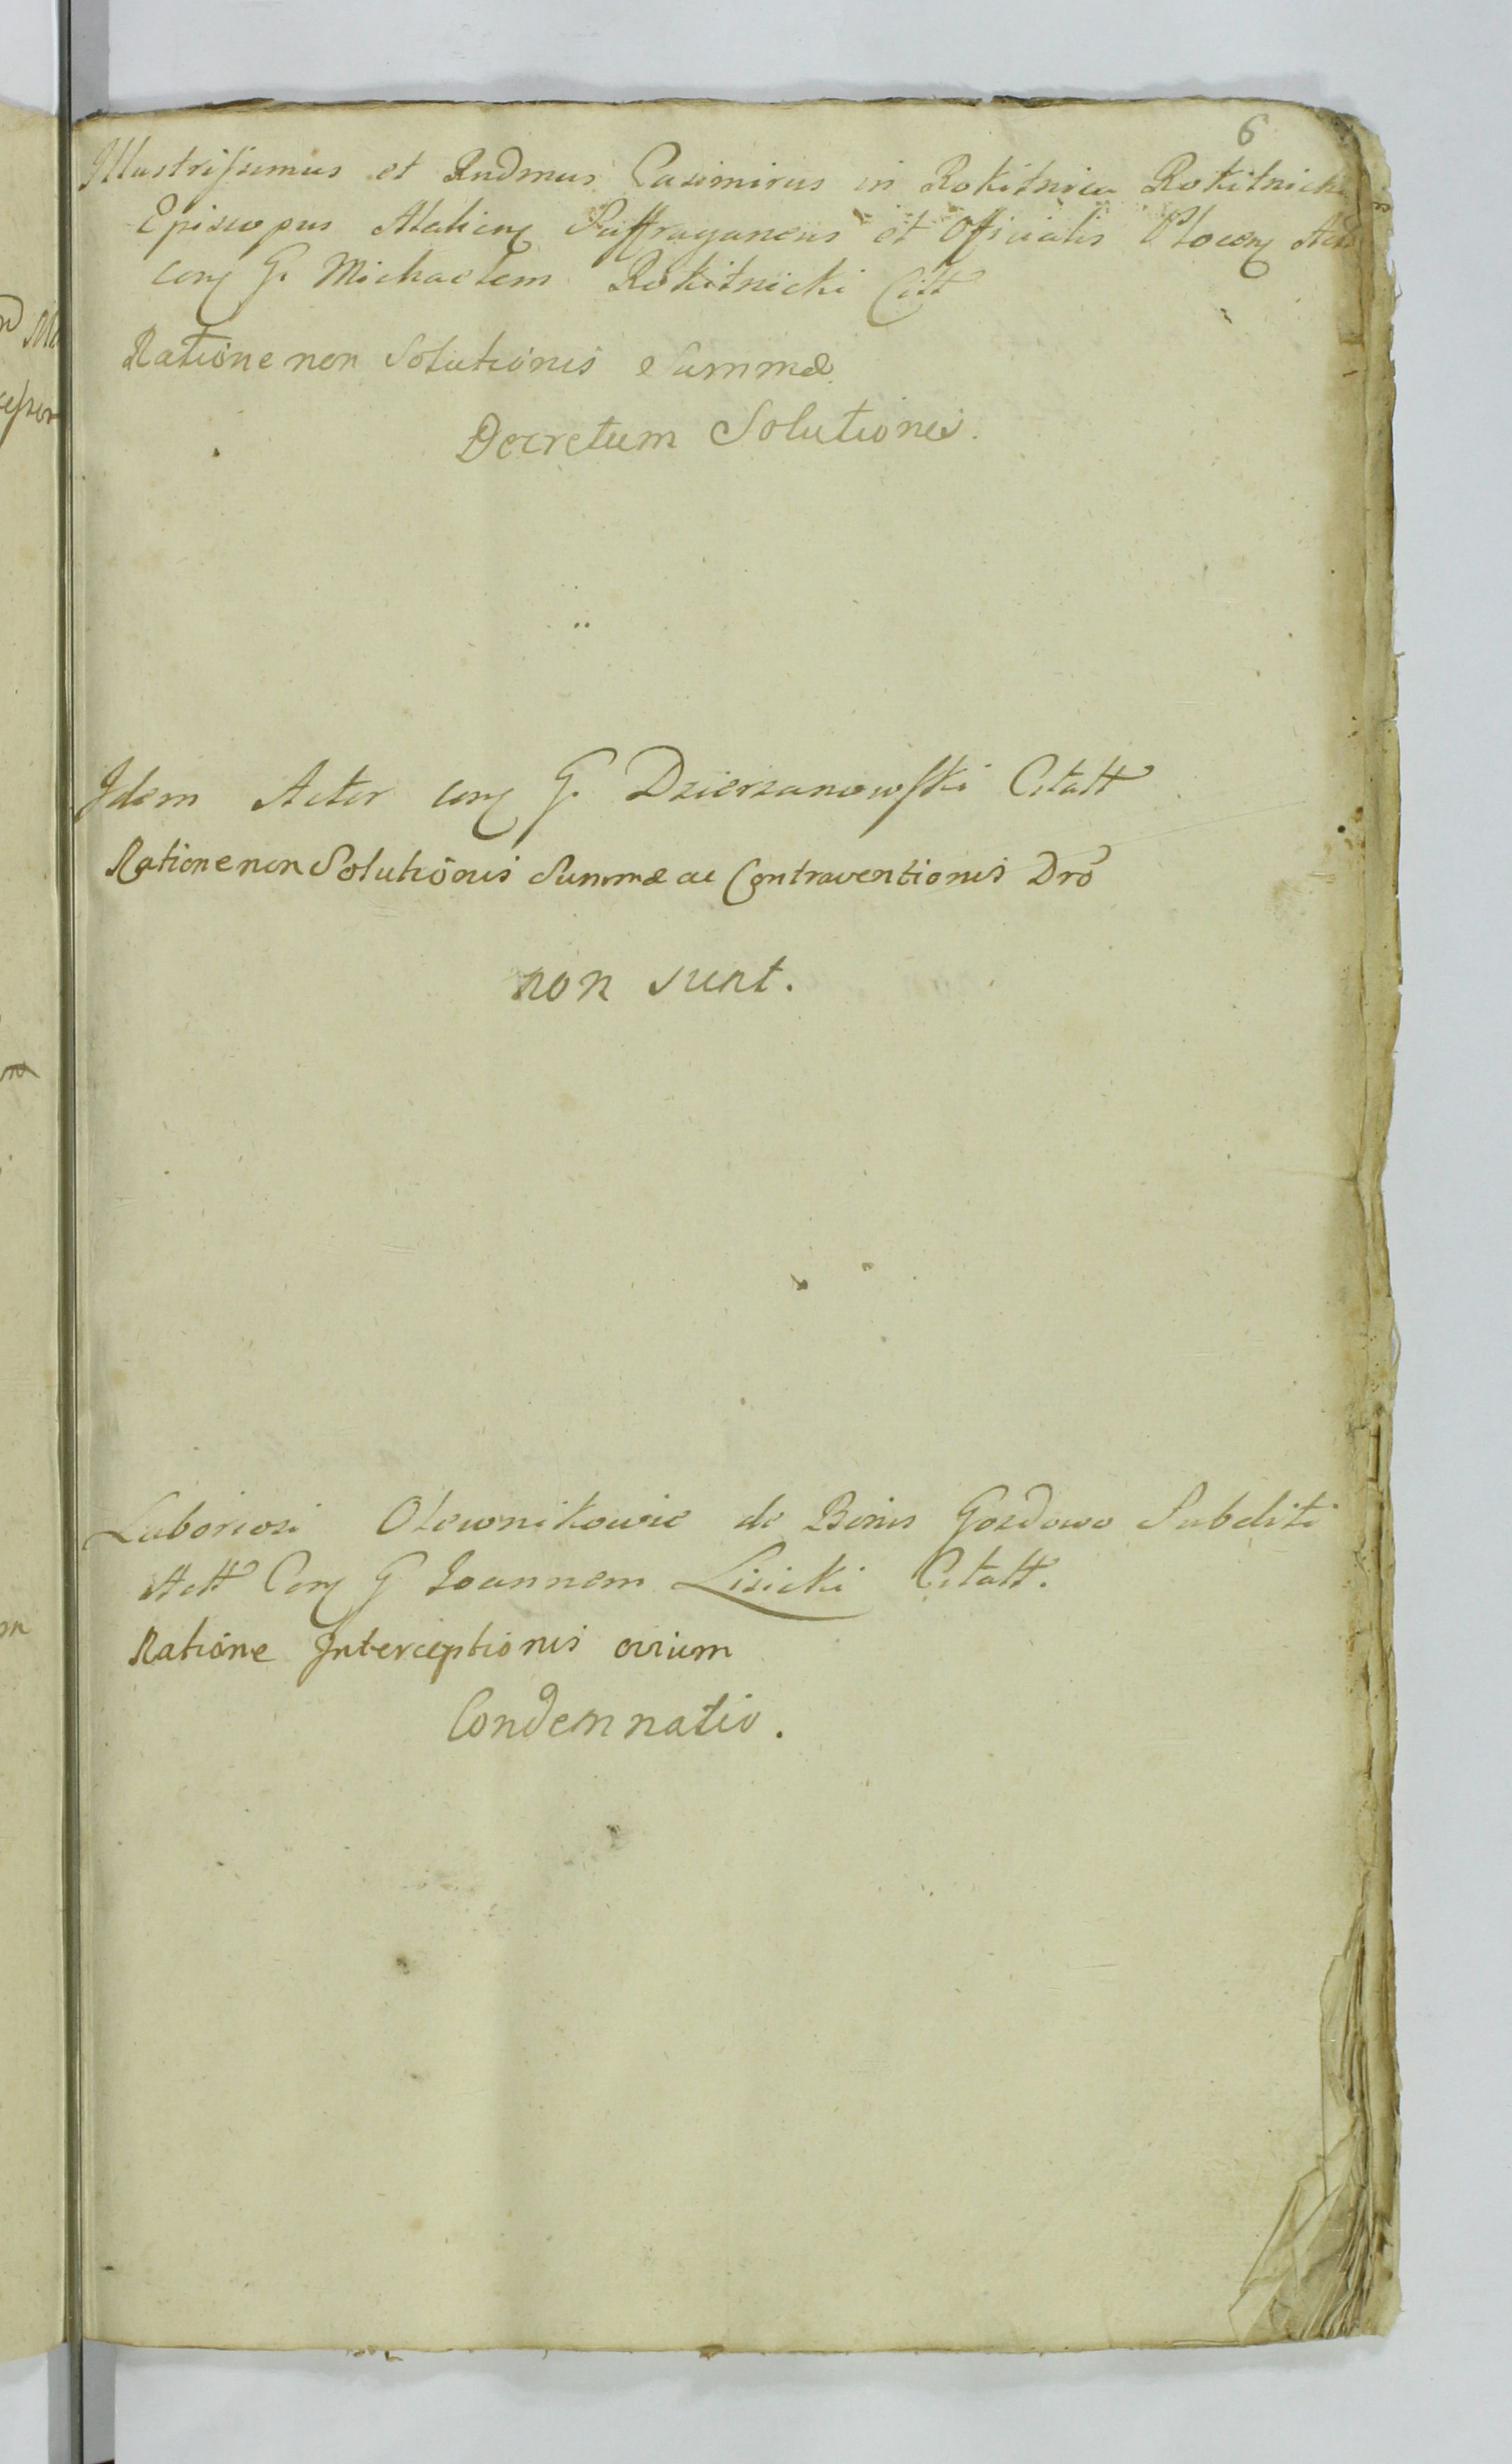 6
Illustrissimus et Rndmus Casimirus in Rokitnica Rokitnicki
Episcopus Suffraganeus et Officialis Plocen
con G. Michaelem Rokitnicki Citt
Ratione non Solutionis Summæ
Decretum Solutionis.
Idem Actor con G. Dzierzanowski Citatt
Ratione non Solutionis Summæ ac Contraventionis Dro
non sunt.
Laboriosi Olewnikowie de Bonis Gozdowo Subditi
Actt Con G Joannem Lisicki Citatt.
Ratione Interceptionis ovium
Condemnatio.